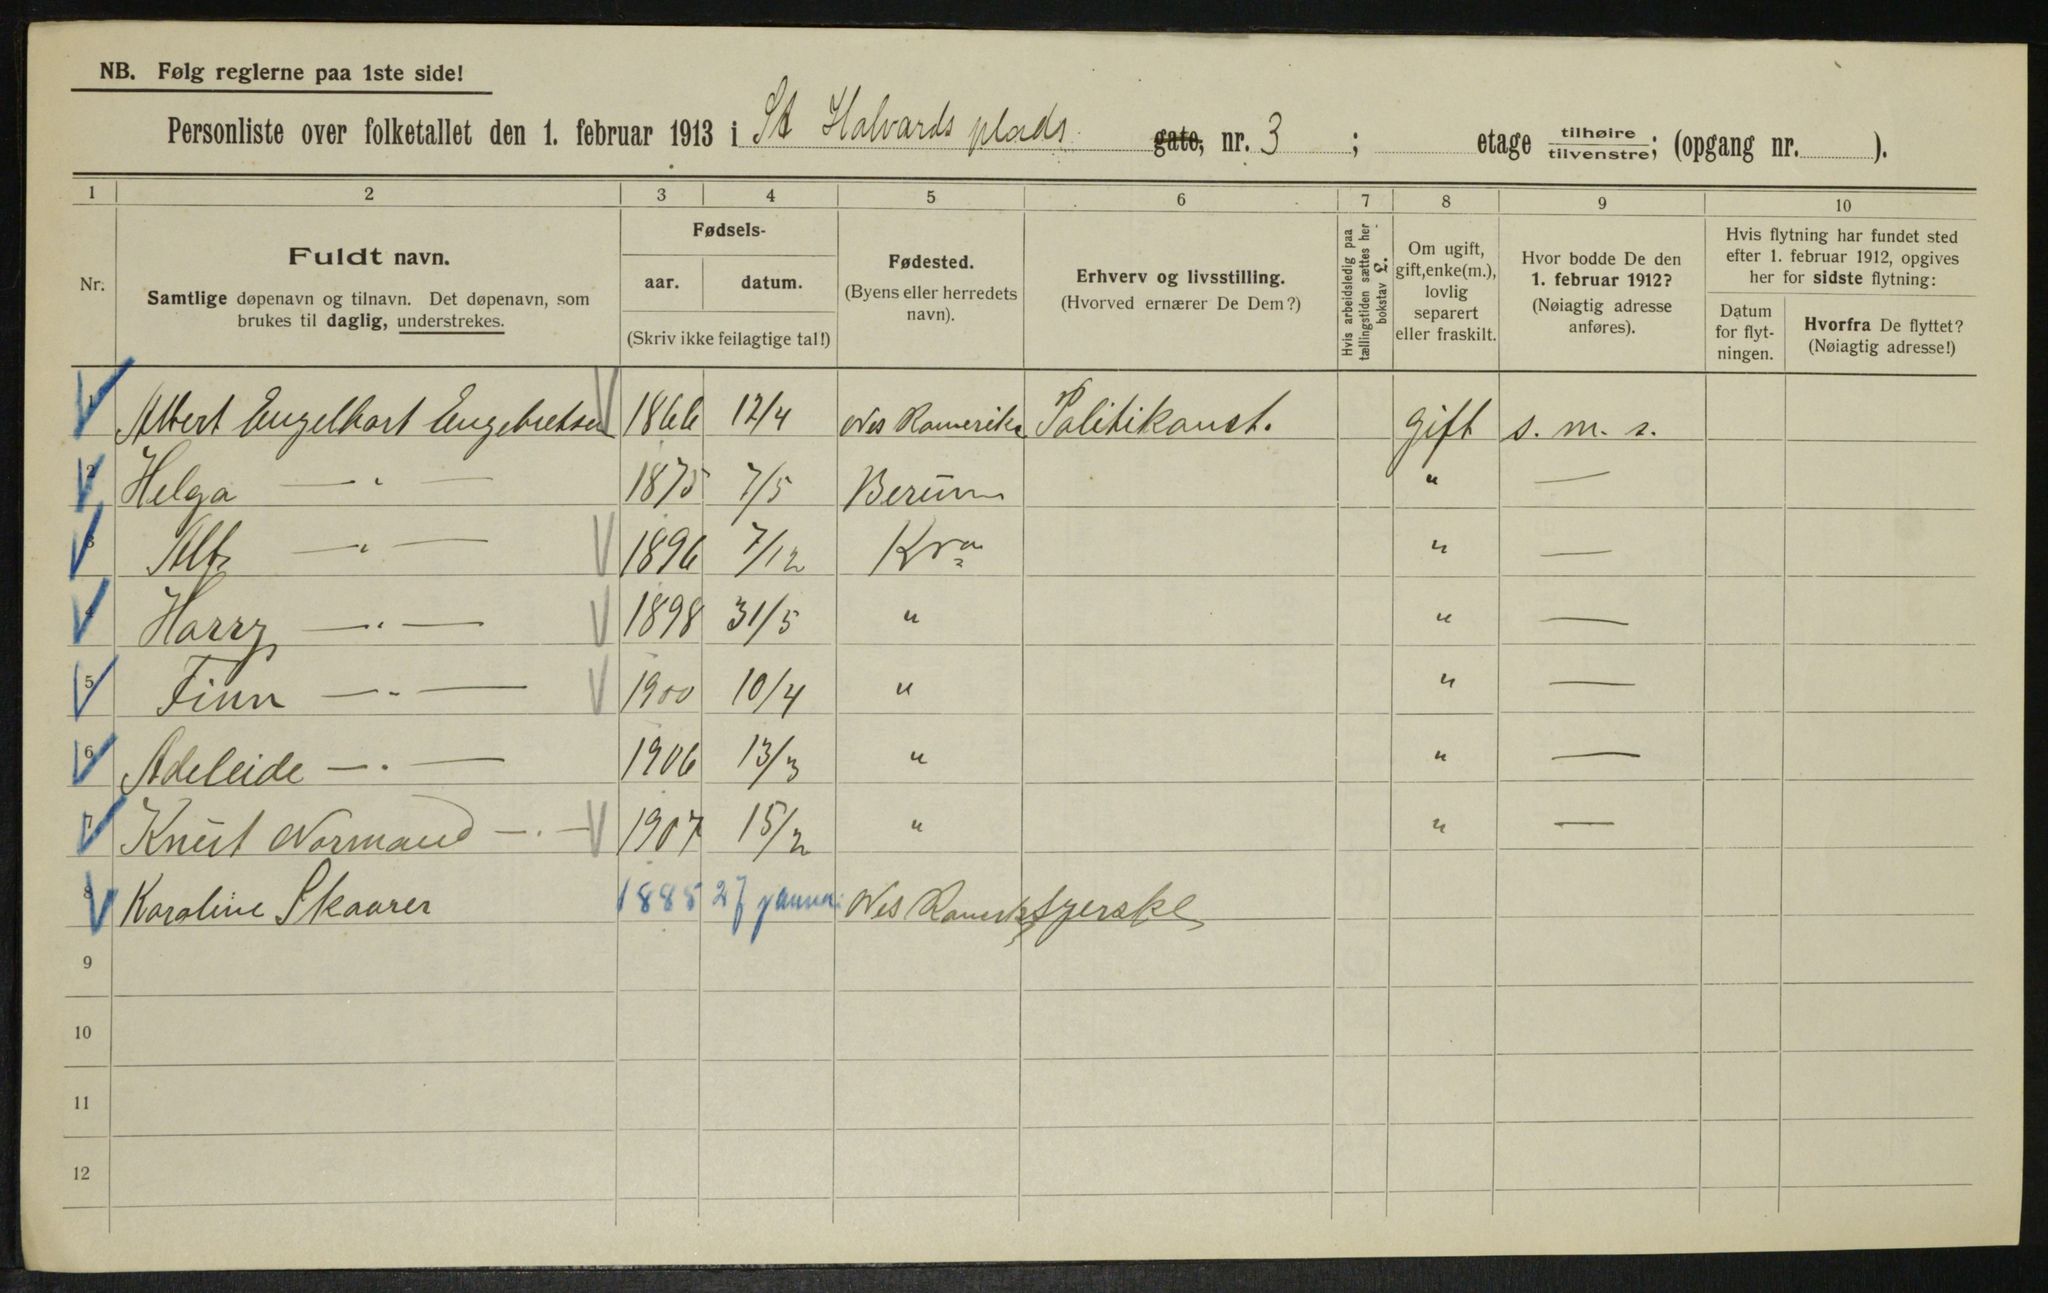 NB. Følg reglerne paa 1ste side!
Personliste over folketallet den 1. februar 1913 i St Halvards plads gate, nr. 3 ; etage tilhøire/tilvenstre; (opgang nr. ).
1 2 3 4 5 6 7 8 9 10
Nr.
Fuldt navn.
Samtlige døpenavn og tilnavn. Det døpenavn, som
brukes til daglig, understrekes.
Fødsels-
aar. datum.
(Skriv ikke feilagtige tal!)
Fødested.
(Byens eller herredets
navn).
Erhverv og livsstilling.
(Hvorved ernærer De Dem?)
Hvis arbeidsledig paa
tællingstiden sættes her
bokstav £.
Om ugift,
gift, enke(m.),
lovlig
separert
eller fraskilt.
Hvor bodde De den
1. februar 1912?
(Nøiagtig adresse
anføres).
Hvis flytning har fundet sted
efter 1. februar 1912, opgives
her for sidste flytning:
Datum
for flyt-
ningen.
Hvorfra De flyttet?
(Nøiagtig adresse!)
1 Albert Engelhart Engebretsen 1866 12/4 Nes Romerike Politikonst. gift s. m. s.
2 Helga —"— 1875 7/5 Berum " —
3 Alf —"— 1896 7/12 Kra " —
4 Harry —"— 1898 31/5 " " —
5 Finn —"— 1900 10/4 " " —
6 Adeleide —"— 1906 13/3 " " —
7 Knut Normand —"— 1907 15/2 " " —
8 Karoline Skaarer 1885 27 januar Nes Romerike Syerske
9
10
11
12